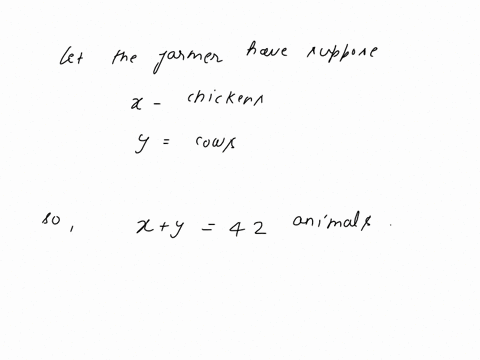 let the farmer have suppose
x - chickens
y = cows
so, x+y = 42 animals.